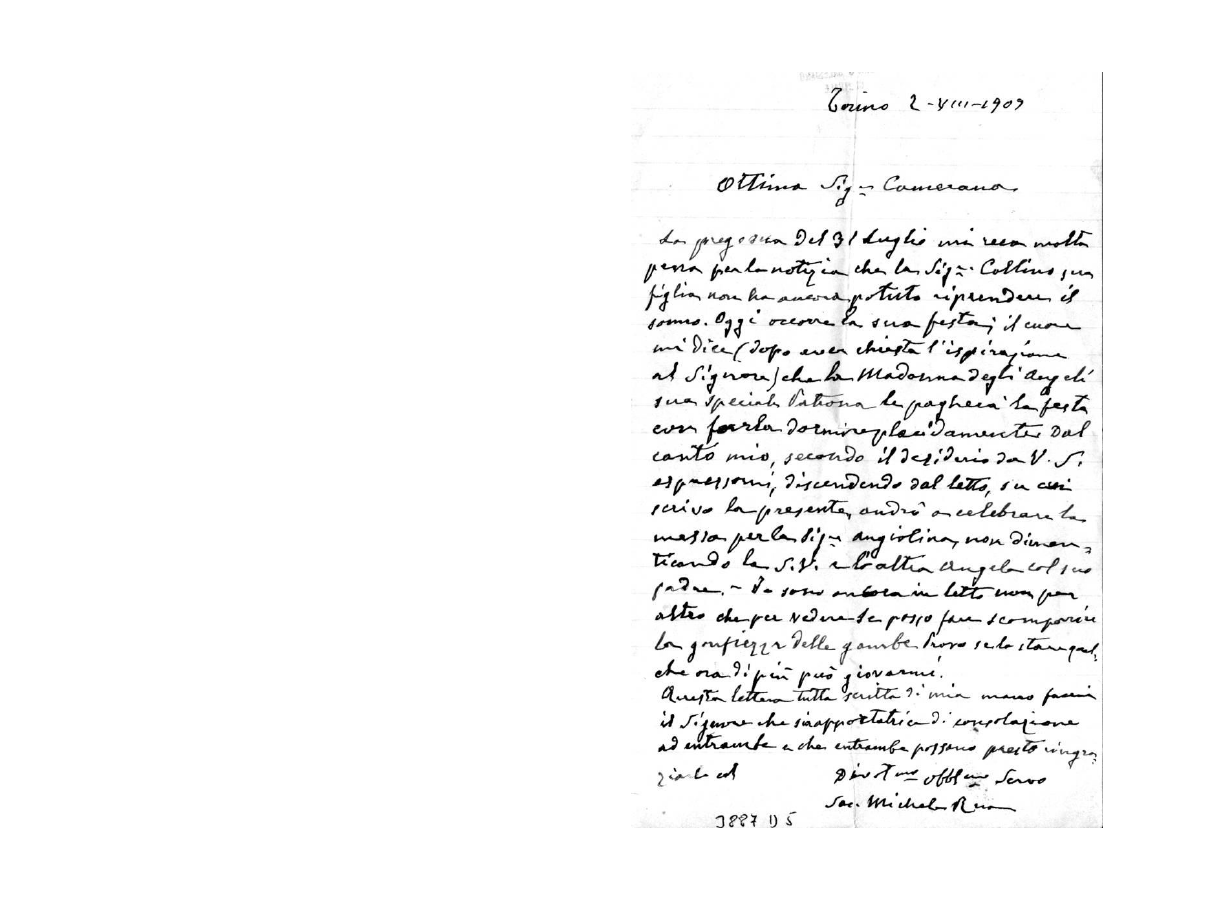 Torino 2-VIII-1909
Ottima Sigra Camerana
La preg sua del 31 Luglio mi reca molta
pena per la notizia che la Sigra Collino sua
figlia non ha ancora potuto riprendere il
sonno. Oggi occorre la sua festa; il cuore
mi dice (dopo aver chiesta l'ispirazione
al Signore) che la Madonna degli Angeli
sua speciale Patrona le pagherà la festa
con farla dormire placidamente. Dal
canto mio, secondo il desiderio da V. S.
espressomi, discendendo dal letto, su cui
scrivo la presente, andrò a celebrare la
messa per la Sigra Angiolina, non dimen=
ticando la S.V. e l'altra Angela col suo
padre. - Io sono ancora in letto non per
altro che per vedere se posso fare scomparire
la gonfiezza delle gambe. Provo se lo stare qual
che ora di più può giovarmi.
Questa lettera tutta scritta di mia mano faccia
il Signore che sia apportatrice di consolazione
ad entrambe e che entrambe possano presto ringra
ziarlo col
Divotmo obblmo Servo
Sac. Michele Rua
3887 D 5